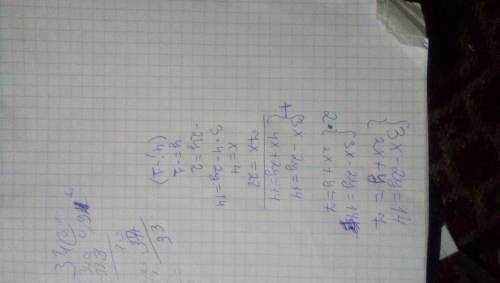 {3x - 2y = 14
{2x + y = 7
2·{3x - 2y = 14
{2x + y = 7
+{3x - 2y = 14
{4x + 2y = 14
7x = 28
x = 4
3·4 - 2y = 14
-2y = 2
y = -1
(4; -1)